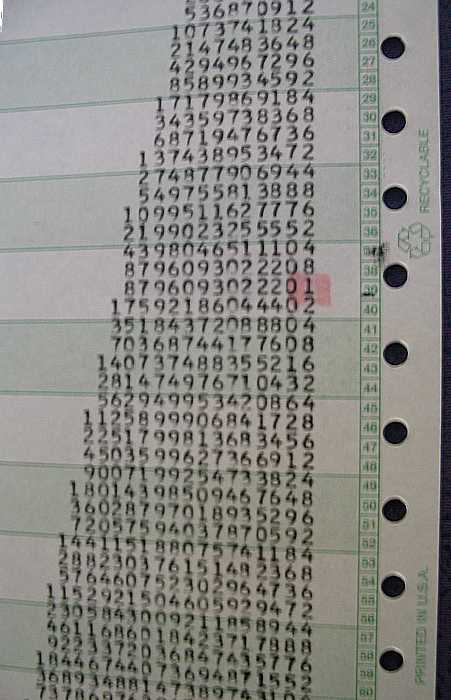 536870912 24
1073741824 25
2147483648 26
4294967296 27
8589934592 28
17179869184 29
34359738368 30
68719476736 31
137438953472 32
274877906944 33
549755813888 34
1099511627776 35
2199023255552 36
4398046511104
8796093022208 38
8796093022201 39
17592186044402 40
35184372088804 41
70368744177608 42
140737488355216 43
281474976710432 44
562949953420864 45
1125899906841728 46
2251799813683456 47
4503599627366912 48
9007199254733824 49
18014398509467648 50
36028797018935296 51
72057594037870592 52
144115188075741184 53
288230376151482368 54
576460752302964736 55
1152921504605929472 56
2305843009211858944 57
4611686018423717888 58
9223372036847435776 59
18446744073694871552 60
RECYCLABLE
PRINTED IN U.S.A.